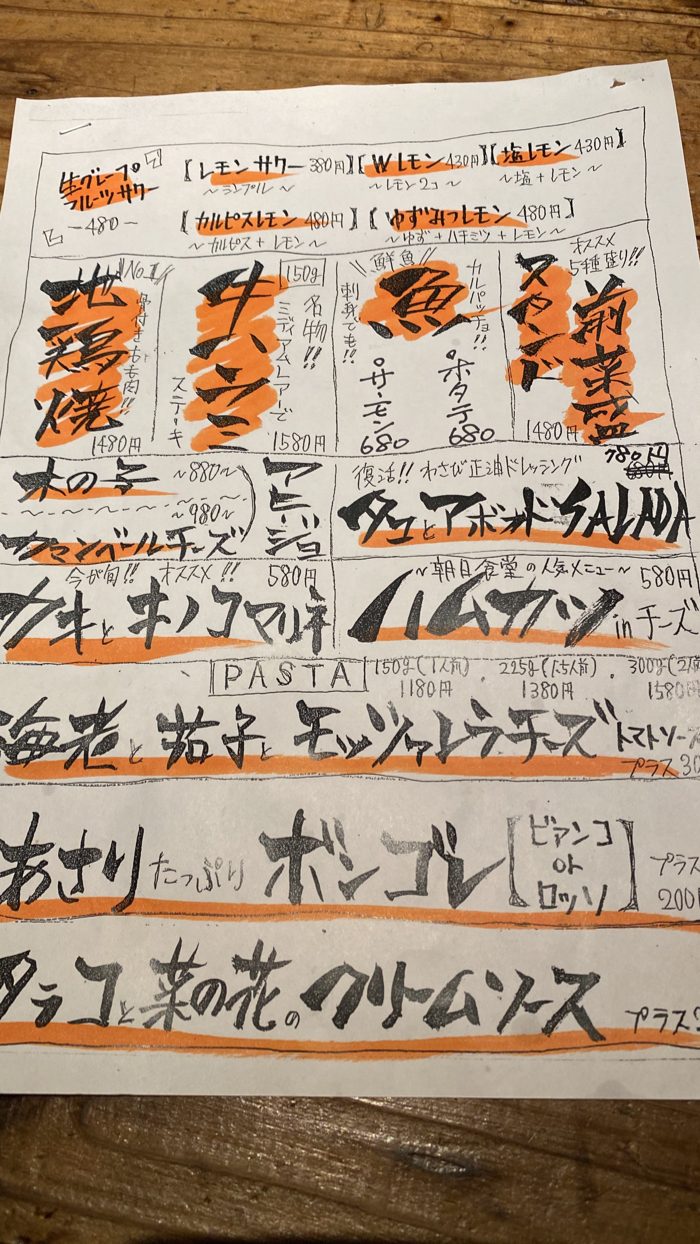 生グレープ
フルーツサワー
-480-
【レモンサワー 380円】【Wレモン 430円】【塩レモン 430円】
~シンプル~ ~レモン2コ~ ~塩+レモン~
【カルピスレモン 480円】【ゆずみつレモン 480円】
~カルピス+レモン~ ~ゆず+ハチミツ+レモン~
No.1!!
地鶏焼
骨付きもも肉!!
1480円
150g
名物!!
牛ハラミ
ミディアムレアで
ステーキ
1580円
鮮魚!!
魚
カルパッチョ!!
刺身でも!!
ホタテ 680
サーモン 680
オススメ
5種盛り!!
前菜盛
スタンド
1480円
木の子 ~880~
カマンベールチーズ ~980~
アヒージョ
復活!! わさび正油ドレッシング
780円
680円
タコとアボカドSALADA
今が旬!! オススメ!! 580円
カキとキノコマリネ
~朝日食堂の人気メニュー~ 580円
ハムカツ in チーズ
PASTA 150g(1人前) . 225g(1.5人前) . 300g(2人前
1180円 1380円 1580円
海老と茄子とモッツァレラチーズ トマトソース
プラス30
あさりたっぷり ボンゴレ【ビアンコ or ロッソ】 プラス
200
タラコと菜の花のクリームソース プラス